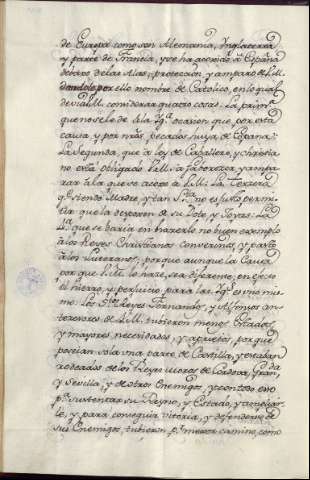 de Europa como son Alemania, Inglaterra
y parte de Francia, y se ha acogido à España
debaxo de las Alas, proteccion, y amparo de V.M.
dandole por ello nombre de Catolico, en lo qual
devia V.M. considerar quatro cosas. La prim.ª
que no se le dé à la Yg.ª ocasion que por esta
causa, y por nros. pecados huya de España:
La Segunda, que à ley de Caballero, y christia
no está obligado V.M. à faborezer, y ampa
rar à la que se acoge à V.M. La tercera
q.e siendo Madre, y tan S.ta no es justo permi
tir que la despojen de su Dote, y Joyas. La
4.ª que se daria en hazerlo no buen exemplo
à los Reyes Christianos Convecinos, y pasto
à los Luteranos; porque aunque la Causa
porque V.M. lo haze, sea diferente; en efecto
el hecho, y perjuicio para las Yg.s es uno mis
mo. Los S.res Reyes Fernando, y Alfonsos an
tecesores de V.M. tubieron menos Estados,
y mayores necesidades, y aprietos, porque
poseian sola una parte de Castilla, y estaban
rodeados de los Reyes moros de Cordova, Gran.da
y Sevilla, y de otros Enemigos, y con todo eso
p.ª sustentar su Reyno, y Estado, y ampliar
le, y para conseguir vitoria, y defenderse de
sus Enemigos, tubieron p.r mexor camino, como